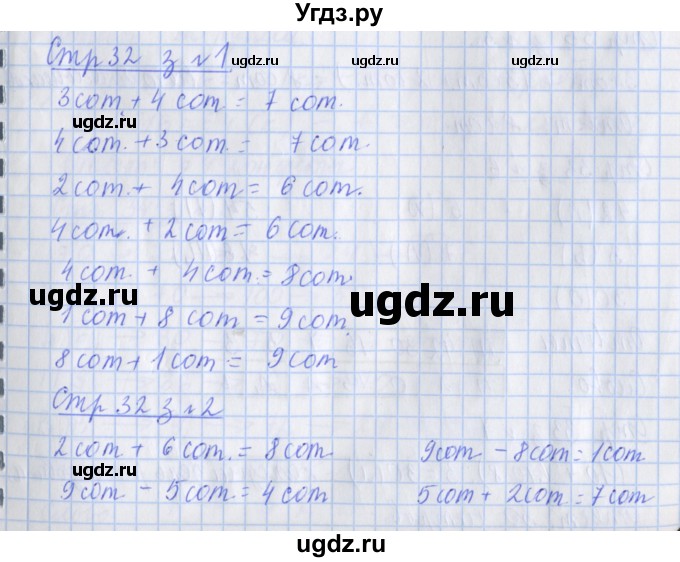 Угдз.ру
Стр 32 з №1
3 сот. + 4 сот. = 7 сот.
4 сот. + 3 сот. = 7 сот.
2 сот. + 4 сот = 6 сот.
4 сот. + 2 сот = 6 сот.
4 сот. + 4 сот. = 8 сот.
1 сот + 8 сот = 9 сот.
8 сот + 1 сот = 9 сот
Стр 32 з №2
2 сот + 6 сот. = 8 сот 9 сот - 8 сот = 1 сот
9 сот - 5 сот = 4 сот 5 сот + 2 сот = 7 сот
ugdz.ru
ugdz.ru
ugdz.ru
ugdz.ru
ugdz.ru
ugdz.ru
ugdz.ru
ugdz.ru
ugdz.ru
ugdz.ru
ugdz.ru
ugdz.ru
ugdz.ru